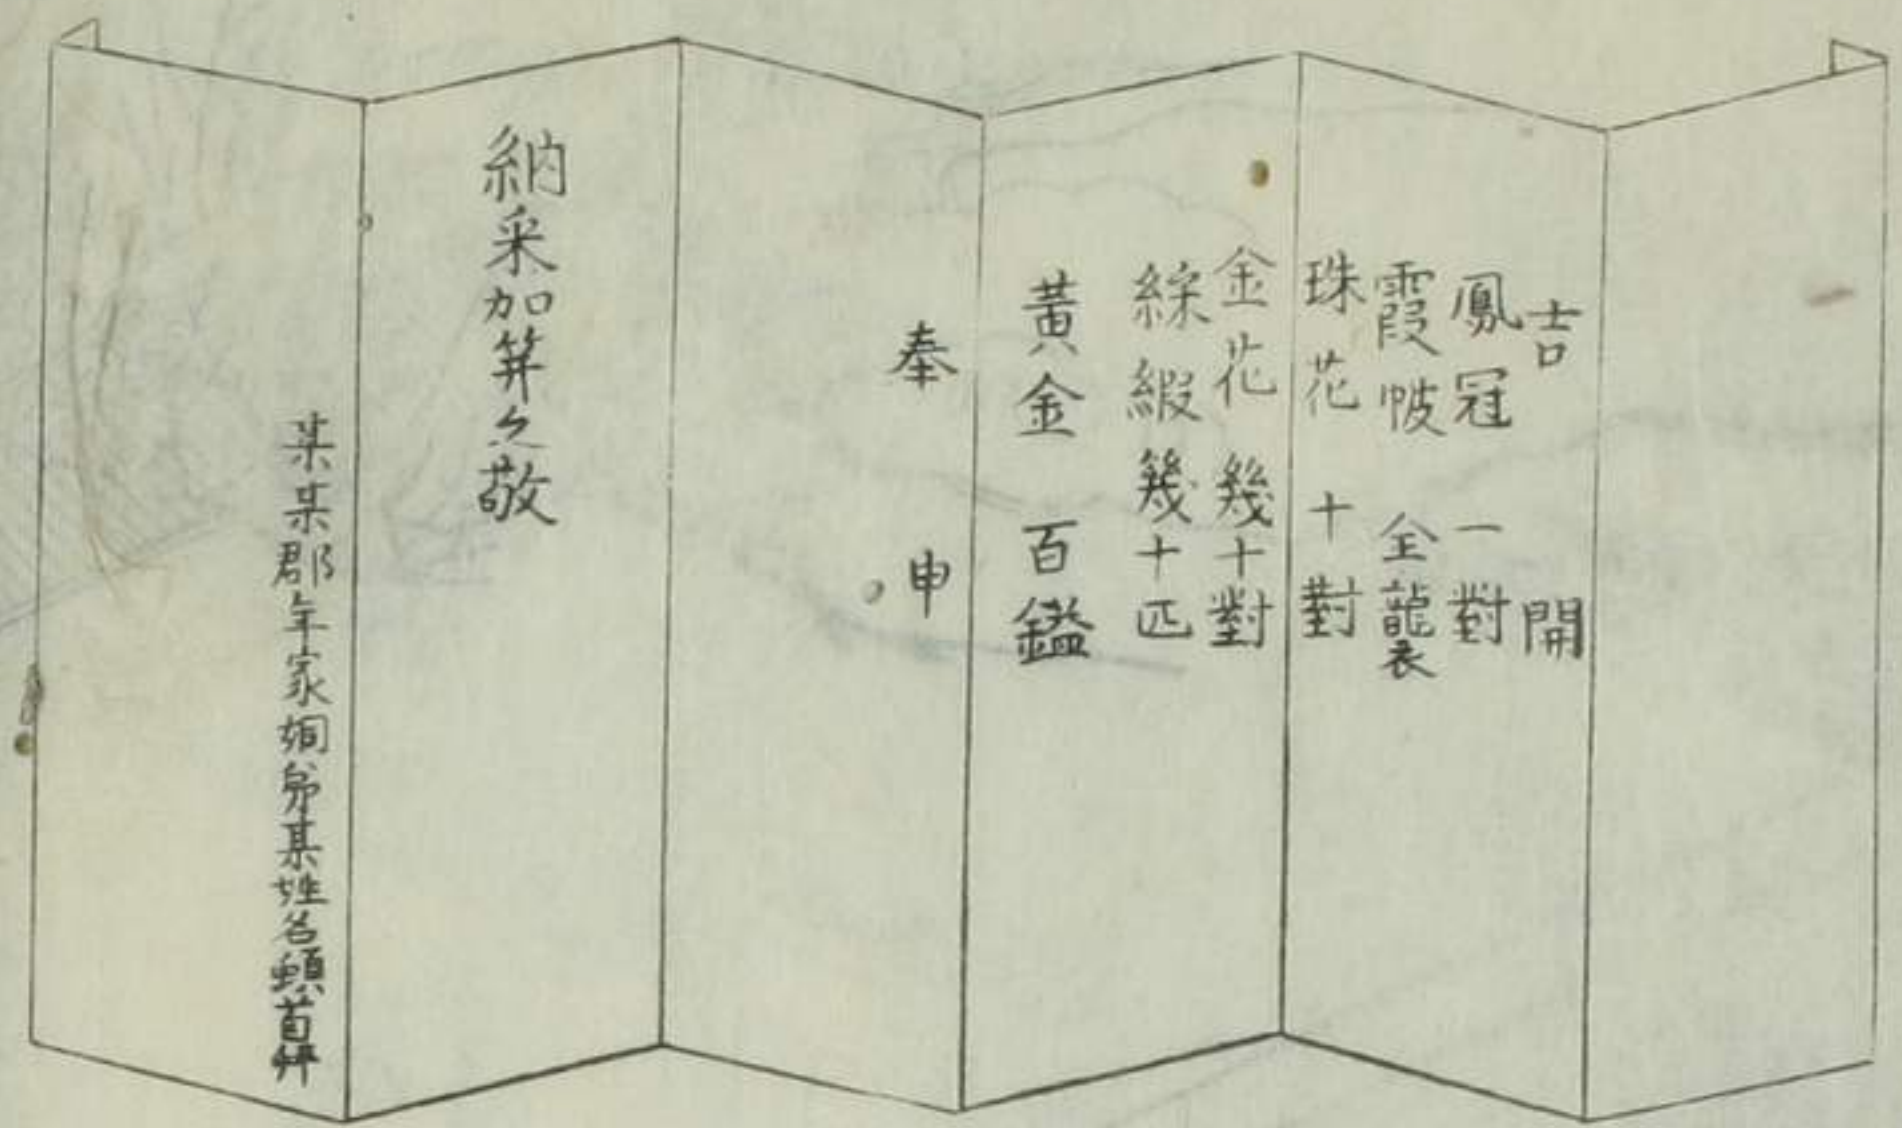 吉 開
鳳冠 一對
霞帔 全襲
珠花 十對
金花 幾十對
綵緞 幾十匹
黃金 百鎰
奉 申
納采加笄之敬
某某郡年家姻弟某姓名頓首拜